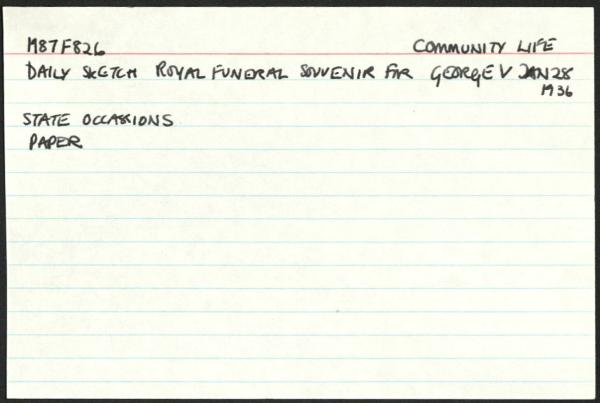 M87F826 COMMUNITY LIFE
DAILY SKETCH ROYAL FUNERAL SOUVENIR FOR GEORGE V JAN 28
1936
STATE OCCASSIONS
PAPER